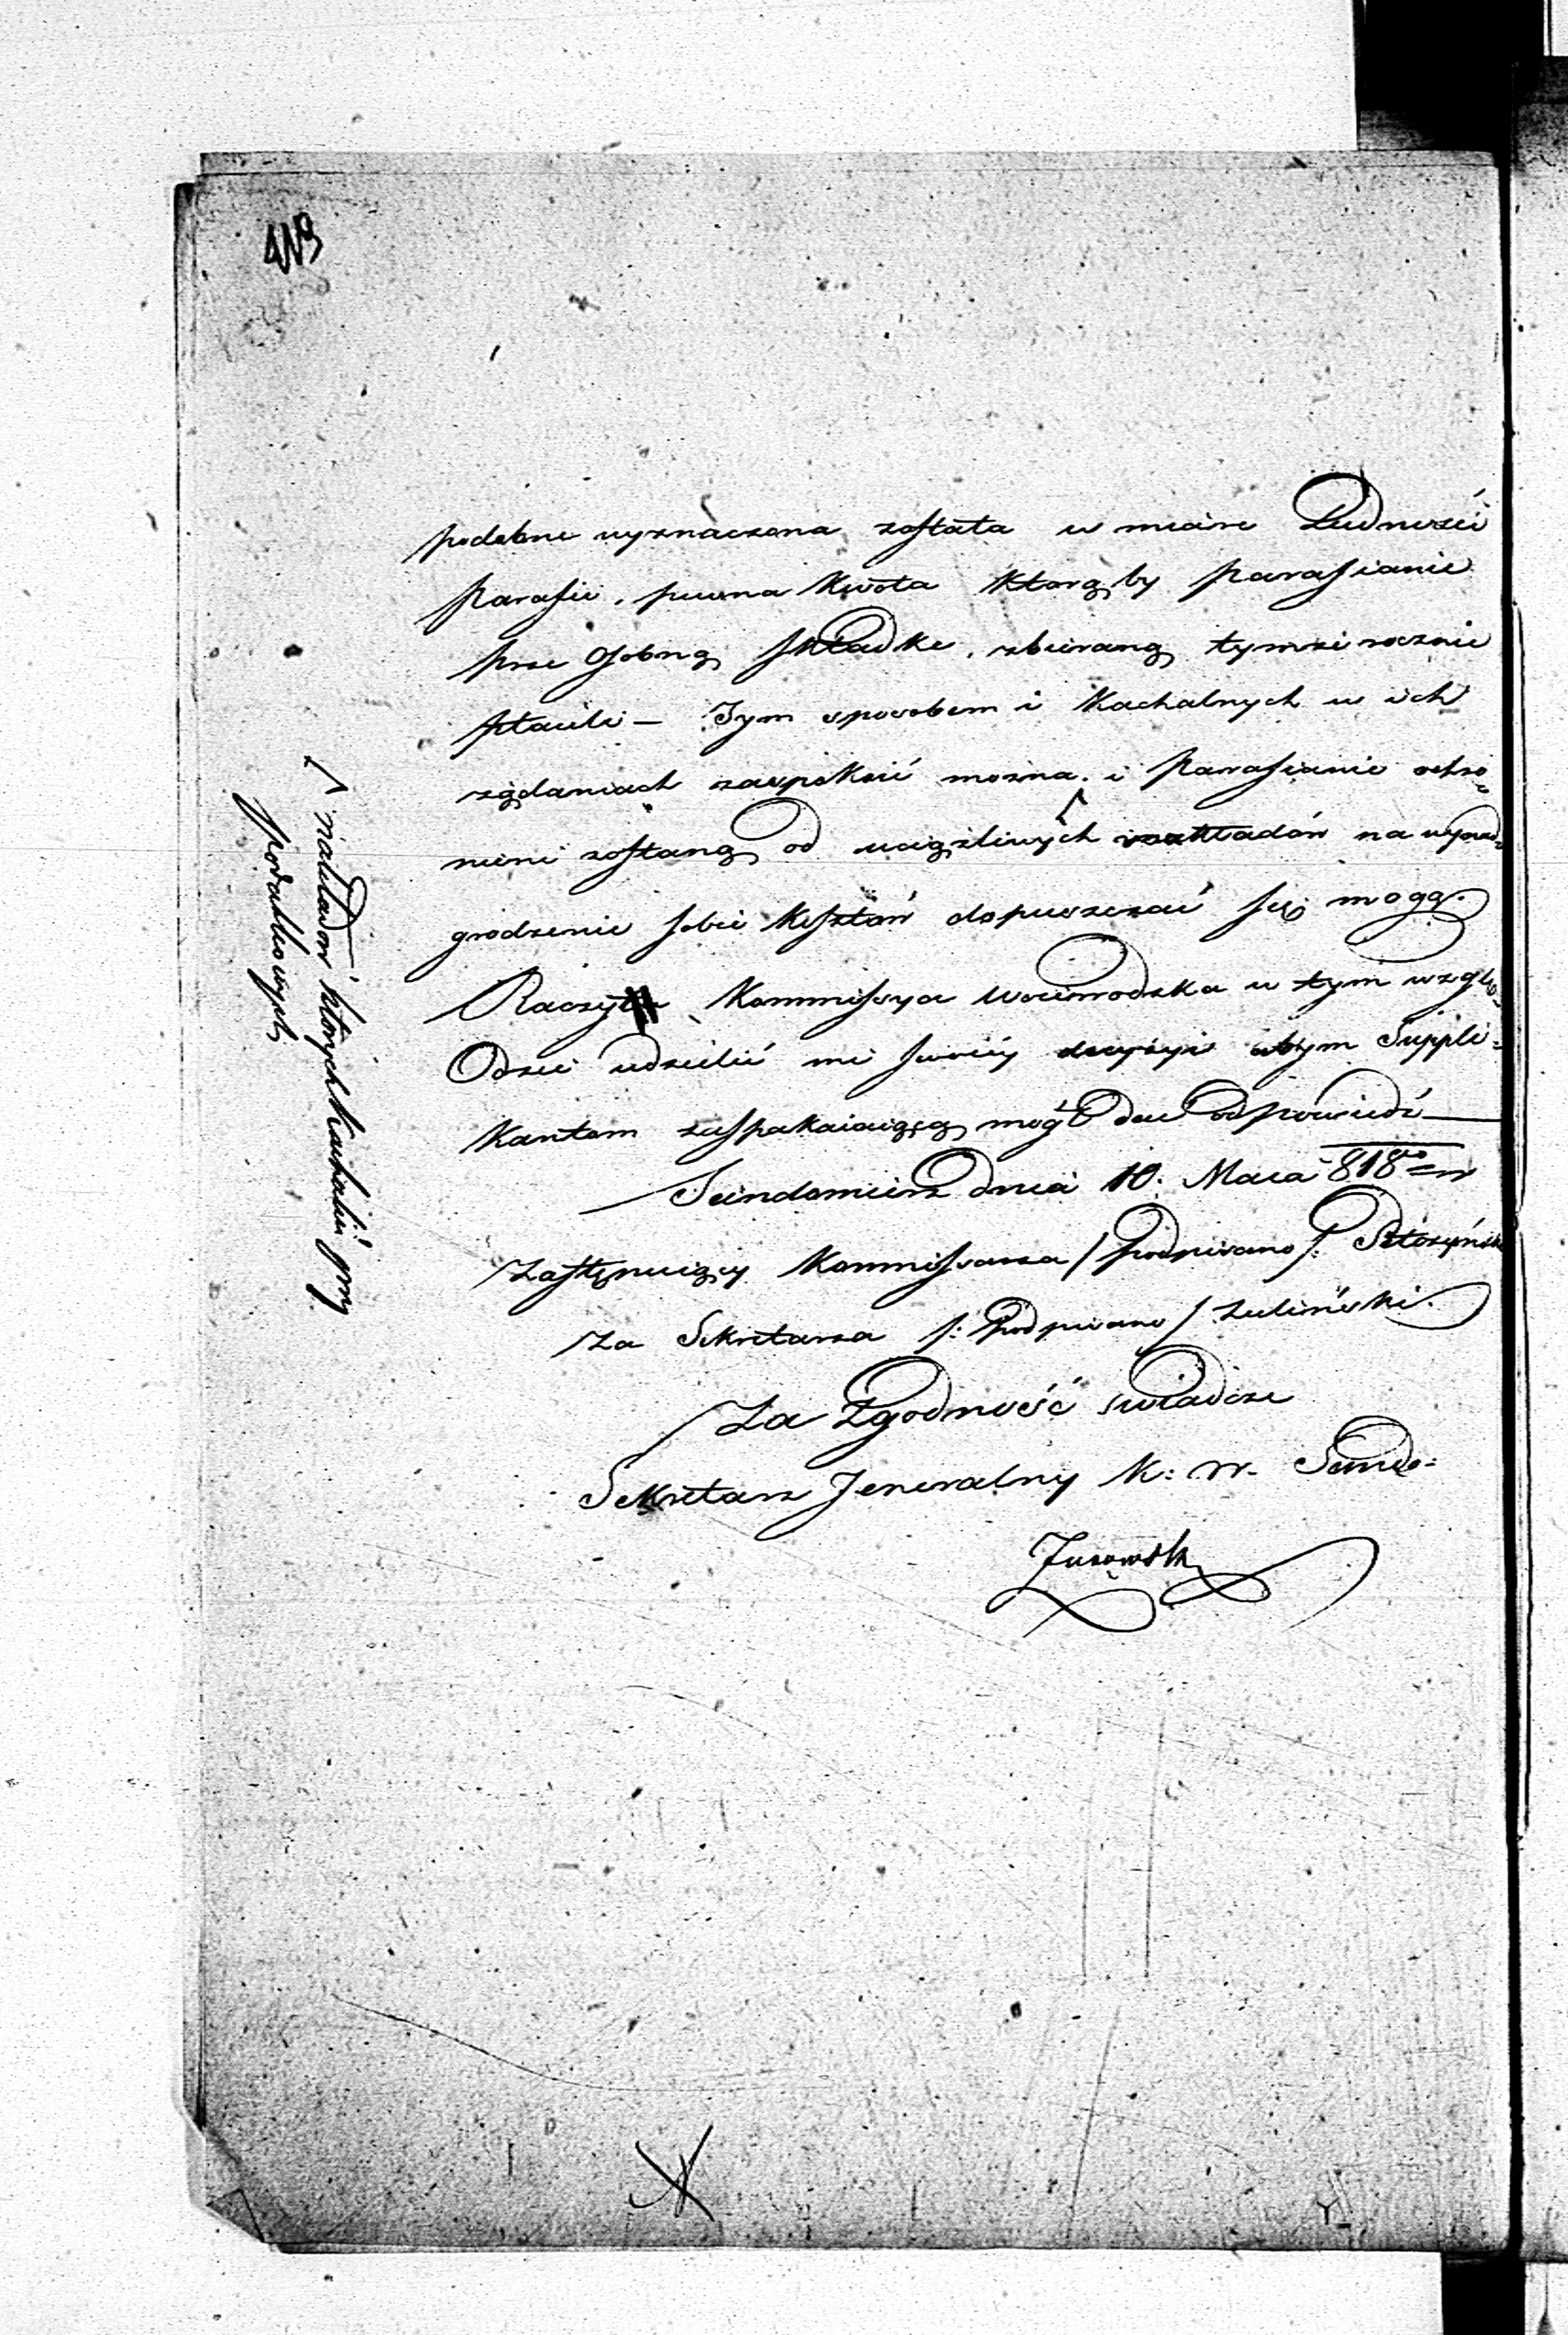 podobne wyznaczona została w miarę Ludności
Parafii, pewna kwota którą by Parafianie
prze Osobną składkę, zbieraną tymże rocznie
płacili — Tym sposobem i Kachalnych w ich
żądaniach zaspokoić można. i Parafianie ochro
nieni zostaną od uciążliwych rozkładów na wynad
grodzenie sobie Kosztów dopuszczać się mogą.
Raczy Kommissya Woiewodzka w tym wzglę
Odzie udzielić mi swoiey decyzyi abym Suppli=
kantom zaspakaiaiącą mógł dać odpowiedź —
Sandomierz dnia 10. Maia 818 r
Zastępuiący Kommissarza /podpisano/:
Za Sekretarza /: Podpisano / Zieliński.
Za Zgodność świadczę
Sekretarz Jeneralny K: W. Sando:
nakładów których Kachalni przy
podatkowych